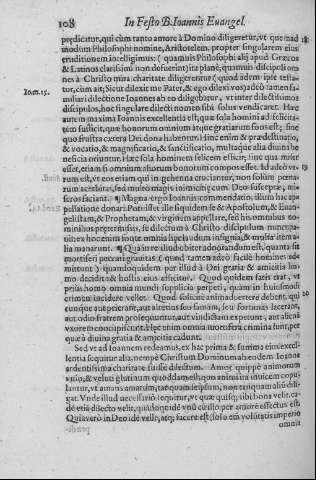 108
In Festo B. Ioannis Euangel.
prędicatur, qui cùm tanto amore à Domino diligeretur, vt quemad
modum Philosophi nomine, Aristotelem propter singularem eius
eruditionem intelligimus: (quamuis Philosophi alij apud Græcos
& Latinos clarissimi non defuerint) ita planè, quamuis discipuli om
nes à Christo mira charitate diligerentur (quod idem ipse testa-
tur, cùm ait; Sicut dilexit me Pater, & ego dilexi vos) adeò tamen fa-
Ioan. 15.
miliari dilectione Ioannes ab eo diligebatur, vt inter dilectissimos
discipulos, hoc singulare dilectionis nomen sibi solus vendicaret. Hæc
autem maxima Ioannis excellentia est, quæ sola homini ad felicita-
tem sufficit, quæ bonorum omnium atque gratiarum fons est: sine
quo frustra cætera Dei dona habentur. Hinc enim & prædestinatio,
& vocatio, & magnificatio, & sanctificatio, multaque alia diuina be
neficia oriuntur. Hæc sola hominem felicem efficit;
esset, etiam si omnium aliorum bonorum compos esset. Id adeò ve-
rum est, vt eos etiam qui in gehenna cruciantur, non solùm pœna-
rum acerbitas, sed multò magis inimicitiæ cum Deo susceptæ, mi-
seros faciant. Magna ergo Ioannis commendatio, illum hac ap-
pellatione donari. Potuisset ille siquidem se & Apostolum, & Euan-
gelistam, & Prophetam, & virginem appellare, sed his omnibus no-
minibus prętermissis, se dilectum à Christo discipulum nuncupa-
uit:
lia manarunt. ¶ Quare illud obiter adnotandum est, quanta sit
mortiferi peccati grauitas (quod tamen adeò facilè homines ad-
mittunt) quandoquidem per illud à Dei gratia & amicitia ho-
mo decidit & hostis eius efficitur. Quod quidem satis erat, vt
priùs homo omnia mundi supplicia perpeti, quàm in huiusmodi
crimina incidere vellet. Quod sollicitè animaduertere debent, qui
cunque aut peierant, aut alterius seu famam, seu fortunas lacerant,
aut odio fratrem prosequuntur, aut vindictam expetunt, aut alienā
vxorem concupiscunt. Hęc enim omnia mortifera crimina sunt, per
quæ à diuina gratia & amicitia cadunt.
Sed vt ad Ioannem redeamus, ex hac prima & summa eius excel-
lentia sequitur alia, nempè Christum Dominum ab eodem Ioanne
ardentissima charitate fuisse dilectum. Amor quippè animorum
vnio, & veluti glutinum quoddam est, quo animi ad inuicem copu-
lantur, vt amans amatum, tanquam seipsum, non tanquam alium dili-
gat. Vnde illud necessariò sequitur, vt quæ quisq; sibi bona velit, ea-
dē vti dilecto velit, quādoquidē vnū cū illo per amorē effectus est
Quia verò in Deo idē velle, atq; facere est (solo em̄ voluntatis imperio
omnia